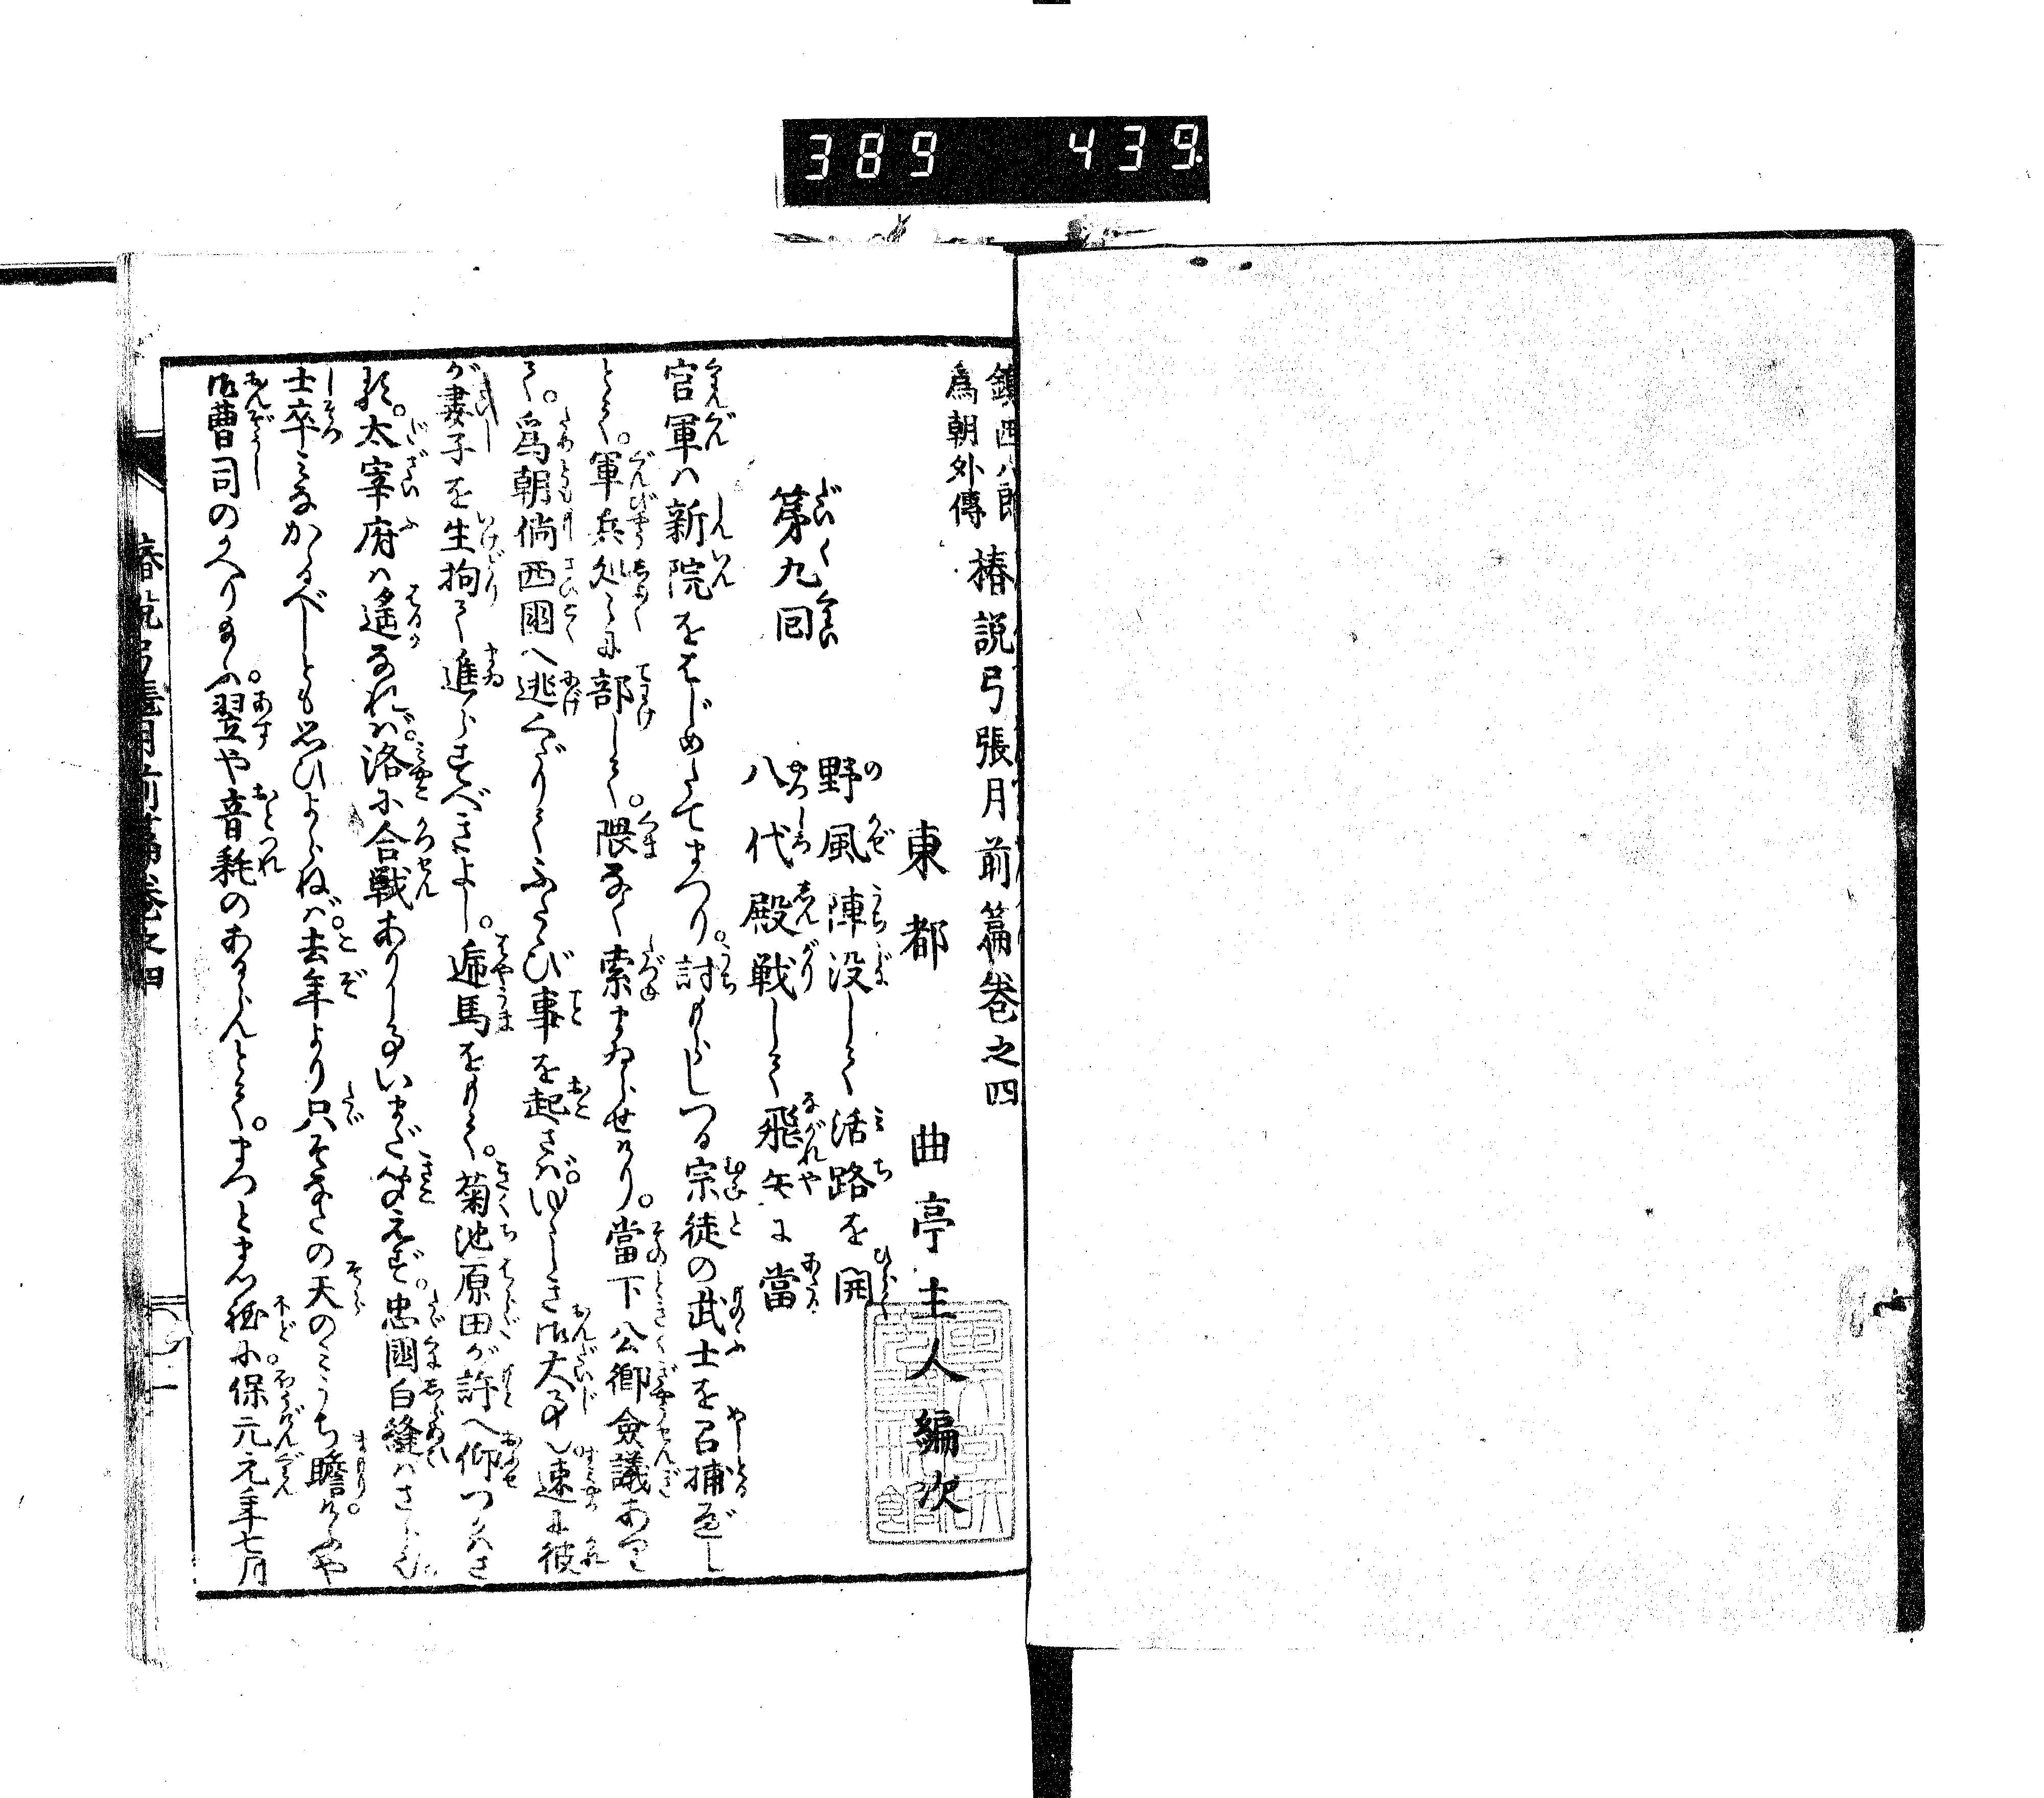 389 439
鎮西八郎
爲朝外傳
椿説弓張月前篇巻之四
東都 曲亭主人編次
第九回
野風陣没して活路を開
八代殿戦して飛矢に當
官軍は新院をはじめたてまつり。討もらしつる宗徒の武士を召捕べし
とて。軍兵処々に部して。隈なく索まゐらせけり。當下公卿僉議あり
て。爲朝倘西國へ逃くだりてふたゝび事を起さば。ゆゝしき御大事也速に彼
が妻子を生拘て進らすべきよし。逓馬をもて。菊池原田が許へ仰つかはさ
る。太宰府は遙なれば。洛に合戦ありし事いまだ聞えず。忠國白縫はさら也
士卒みなかゝるべしとも思ひよらねば。去年より只そなたの天のみうち瞻。けふや
御曹司のかへり給ふ。翌や音耗のあるらんとて。まつとする程に。保元元年七月
椿説弓張月前篇巻之四